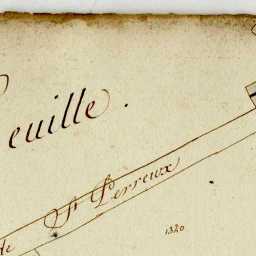 euille.
de St Perreux
1320